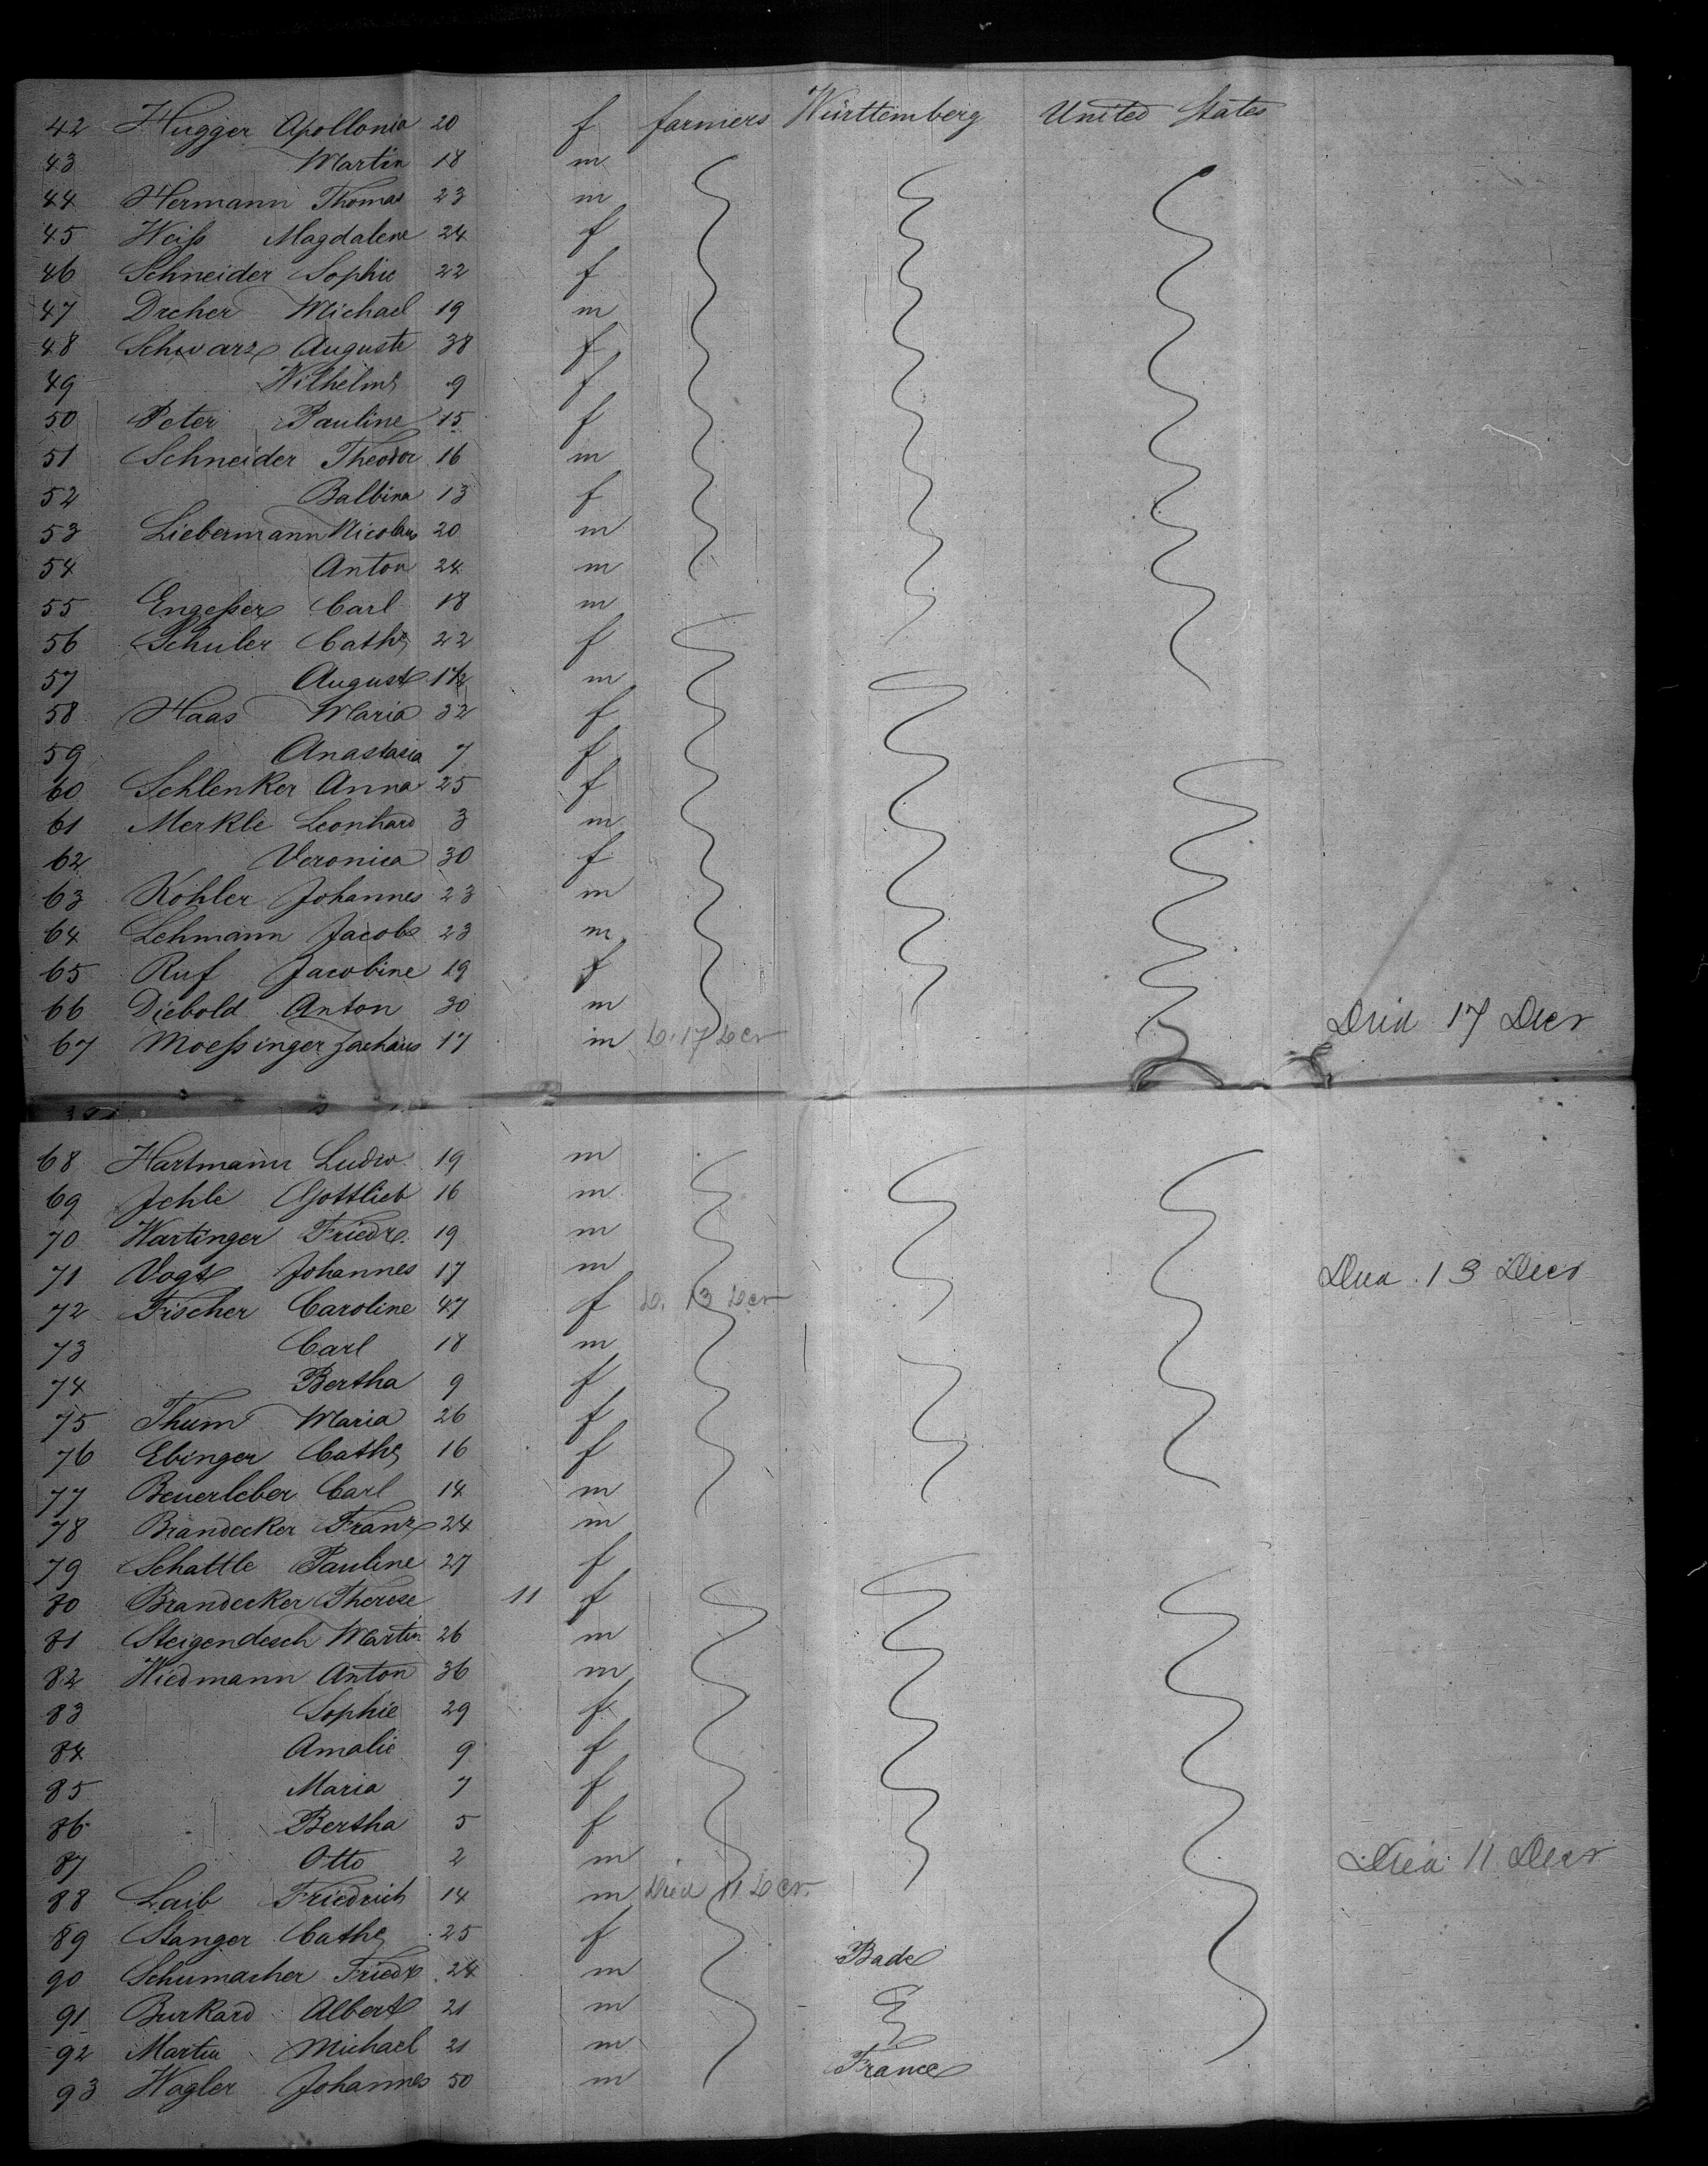 42 Hugger Apollonia 20 f farmers Württemberg United States
43 Martin 18 m
44 Hermann Thomas 23 m
45 Weiß Magdalene 24 f
46 Schneider Sophie 22 f
47 Dreher Michael 19 m
48 Schwarz Auguste 38 f
49 Wilhelm 9 f
50 Peter Pauline 15 f
51 Schneider Theodor 16 m
52 Balbina 13 f
53 Liebermann Nicolaus 20 m
54 Anton 24 m
55 Engeßer Carl 18 m
56 Schuler Cath 22 f
57 August m
58 Haas Maria 32 f
59 Anastasia 7 f
60 Schlenker Anna 25 f
61 Merkle Leonhard 3 m
62 Veronica 30 f
63 Kohler Johannes 23 m
64 Lehmann Jacob 23 m
65 Ruf Jacobine 19 f
66 Diebold Anton 30 m Died 17 Decr
67 Moeßinger Zachäus 17 m D. 17 Decr
68 Hartmann Ludw. 19 m
69 Jehle Gottlieb 16 m
70 Wartinger Friedr. 19 m
71 Vogt Johannes 17 m Died 13 Decr
72 Fischer Caroline 47 f D. 13 Decr
73 Carl 18 m
74 Bertha 9 f
75 Thum Maria 26 f
76 Ebinger Cath 16 f
77 Beuerleber Carl 14 m
78 Brandecker Franz 24 m
79 Schattle Pauline 27 f
80 Brandecker Therese 11 f
81 Steigendesch Martin 26 m
82 Wiedmann Anton 36 m
83 Sophie 29 f
84 Amalie 9 f
85 Maria 7 f
86 Bertha 5 f
87 Otto 2 m Died 11 Decr
88 Laib Friedrich 14 m Died 11 Decr.
89 Stanger Cath 25 f
90 Schumacher Friedr 24 m Bade
91 Burkard Albert 21 m
92 Martin Michael 21 m
93 Wagler Johannes 50 m France